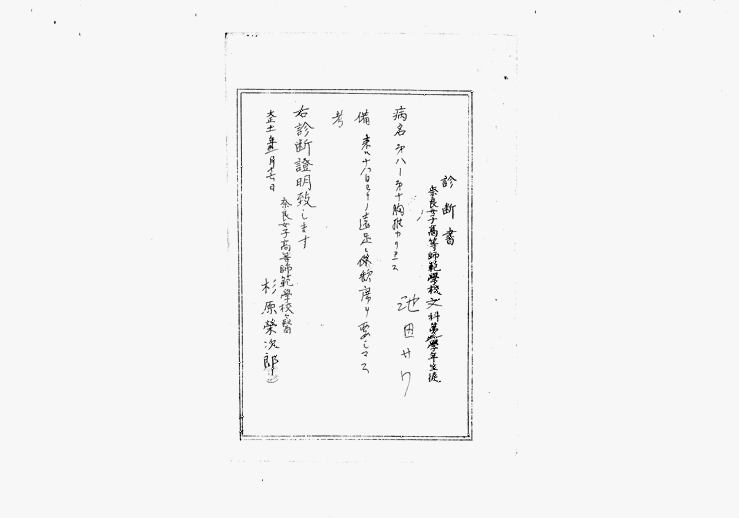 診断書
奈良女子高等師範學校文科第 學年生徒
池田
病名 第八ー第十胸椎カリエス
備考 来ル十八日ヨリノ遠足ハ 欠席ヲ要シマス
右診断證明致します
大正十 年 月十七日
奈良女子高等師範學校校醫
杉原榮次郎